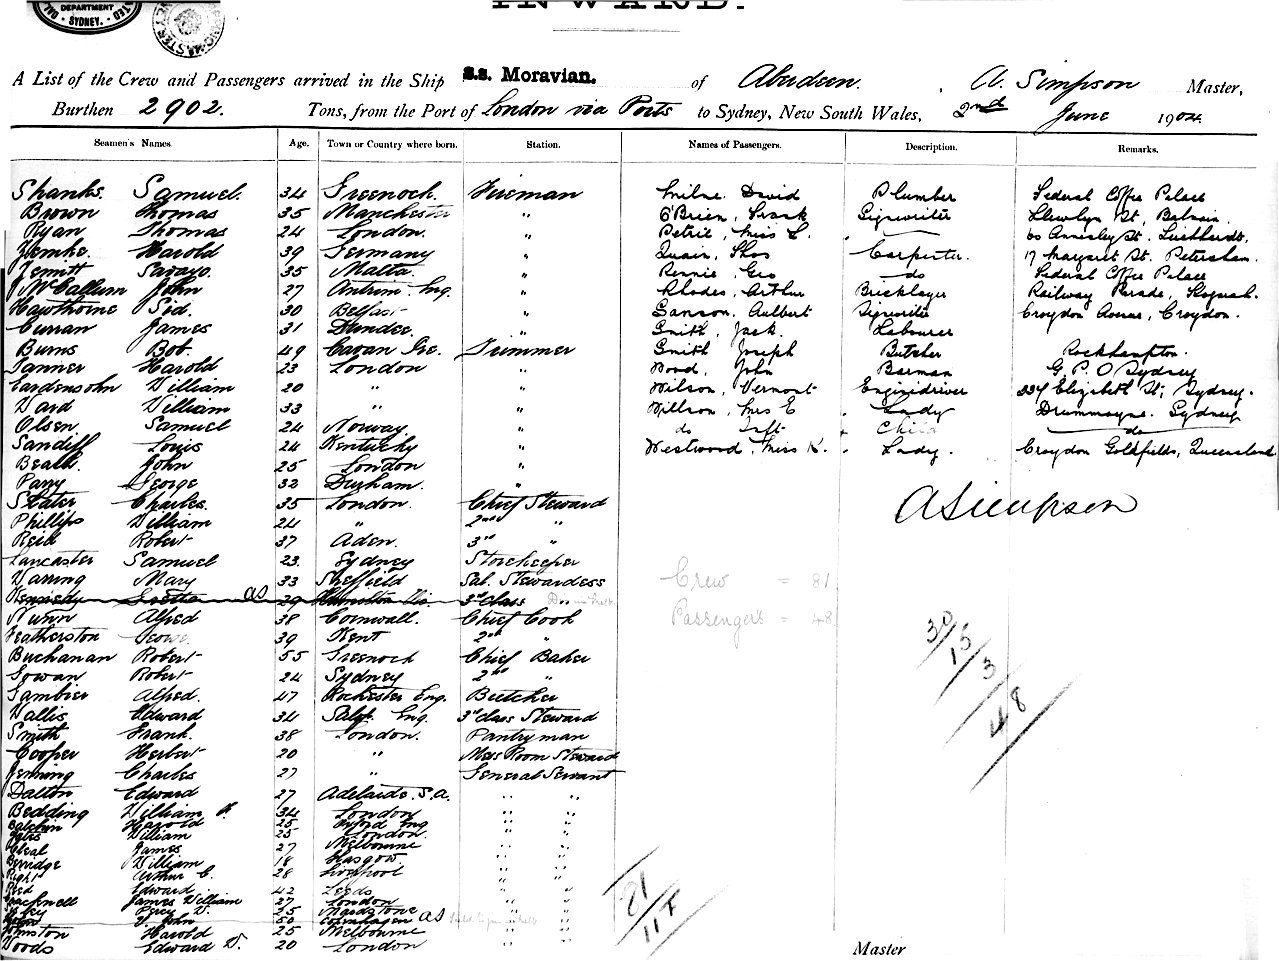 DEPARTMENT
SYDNEY.
INWARD.
A List of the Crew and Passengers arrived in the Ship S.s. Moravian. of Aberdeen. A. Simpson Master,
Burthen 2902. Tons, from the Port of London via Ports to Sydney, New South Wales, 2nd June 1904.
Seamen's Names Age. Town or Country where born. Station. Names of Passengers. Description. Remarks.
Shanks. Samuel. 34 Greenock. Fireman Milne David Plumber Federal Coffee Palace
Brown Thomas 35 Manchester " O'Brien, Frank Signwriter Llewlyn St, Balmain.
Ryan Thomas 24 London. " Petrie, Miss L. 60 Annesley St. Leichhardt.
Harold 39 Germany " Quain, Thos Carpenter. 17 Margaret St. Petersham.
35 Malta. " Rennie, Geo do Federal Coffee Palace
McCallum John 27 Antrim. " Rhodes. Arthur Bricklayer Railway Parade, Kogarah.
Hawthorne Sid. 30 Belfast " Sanson, Aulbert Signwriter Croydon Avenue, Croydon.
Curran James 31 Dundee. " Smith, Jack. Labourer
Burns Bob. 49 Cavan Ire. Trimmer Smith Joseph Butcher Rockhampton.
Tanner Harold 23 London " Wood, John Barman G.P.O Sydney
Eardensohn William 20 " " Wilson, Vernont Enginedriver 234 Elizabeth St, Sydney.
Ward William 33 " " Willson, Mrs E Lady Drummoyne. Sydney
Olsen Samuel 24 Norway " do Child do
Sandiff Louis 24 Kentucky " Westwood, Miss K. Lady. Croydon Goldfields, Queensland
Beald. John 25 London "
Parry George 32 Durham. "
Slater Charles. 35 London. Chief Steward A Simpson
Phillips William 24 " 2nd "
Reid Robert 37 Aden. 3rd "
Lancaster Samuel 23. Sydney Storekeeper
Warring Mary 33 Sheffield Sal. Stewardess Crew = 81
Kennedy Gretta as 29 Hamilton Vic. 3rd class
Nunn Alfred 38 Cornwall. Chief Cook Passengers = 48
Featherston George 39 Kent 2nd " 30
Buchanan Robert 55 Greenock Chief Baker 15
Gowan Robert 24 Sydney 2nd " 3
Gambier Alfred. 47 Rochester Eng. Butcher
Wallis Edward 34 Eng 3rd class Steward 48
Smith Frank. 38 London. Pantryman
Cooper Herbert 20 " Mess Room Steward
Jenning Charles 27 " General Servant
Dalton Edward 27 Adelaide. S.A. " "
Bedding William 34 London " "
Harold 25 Oxford Eng " "
William 25 London. " "
James 27 Melbourne " "
Berridge William 18 Glasgow. " "
Arthur C. 28 Liverpool " "
Reed Edward 42 Leeds " "
James William 27 London " " 81
Percy V. 25 Maidstone " "
John 50 Copenhagen as 117
Johnston Harold 25 Melbourne " "
Woods Edward V. 20 London " "
Master